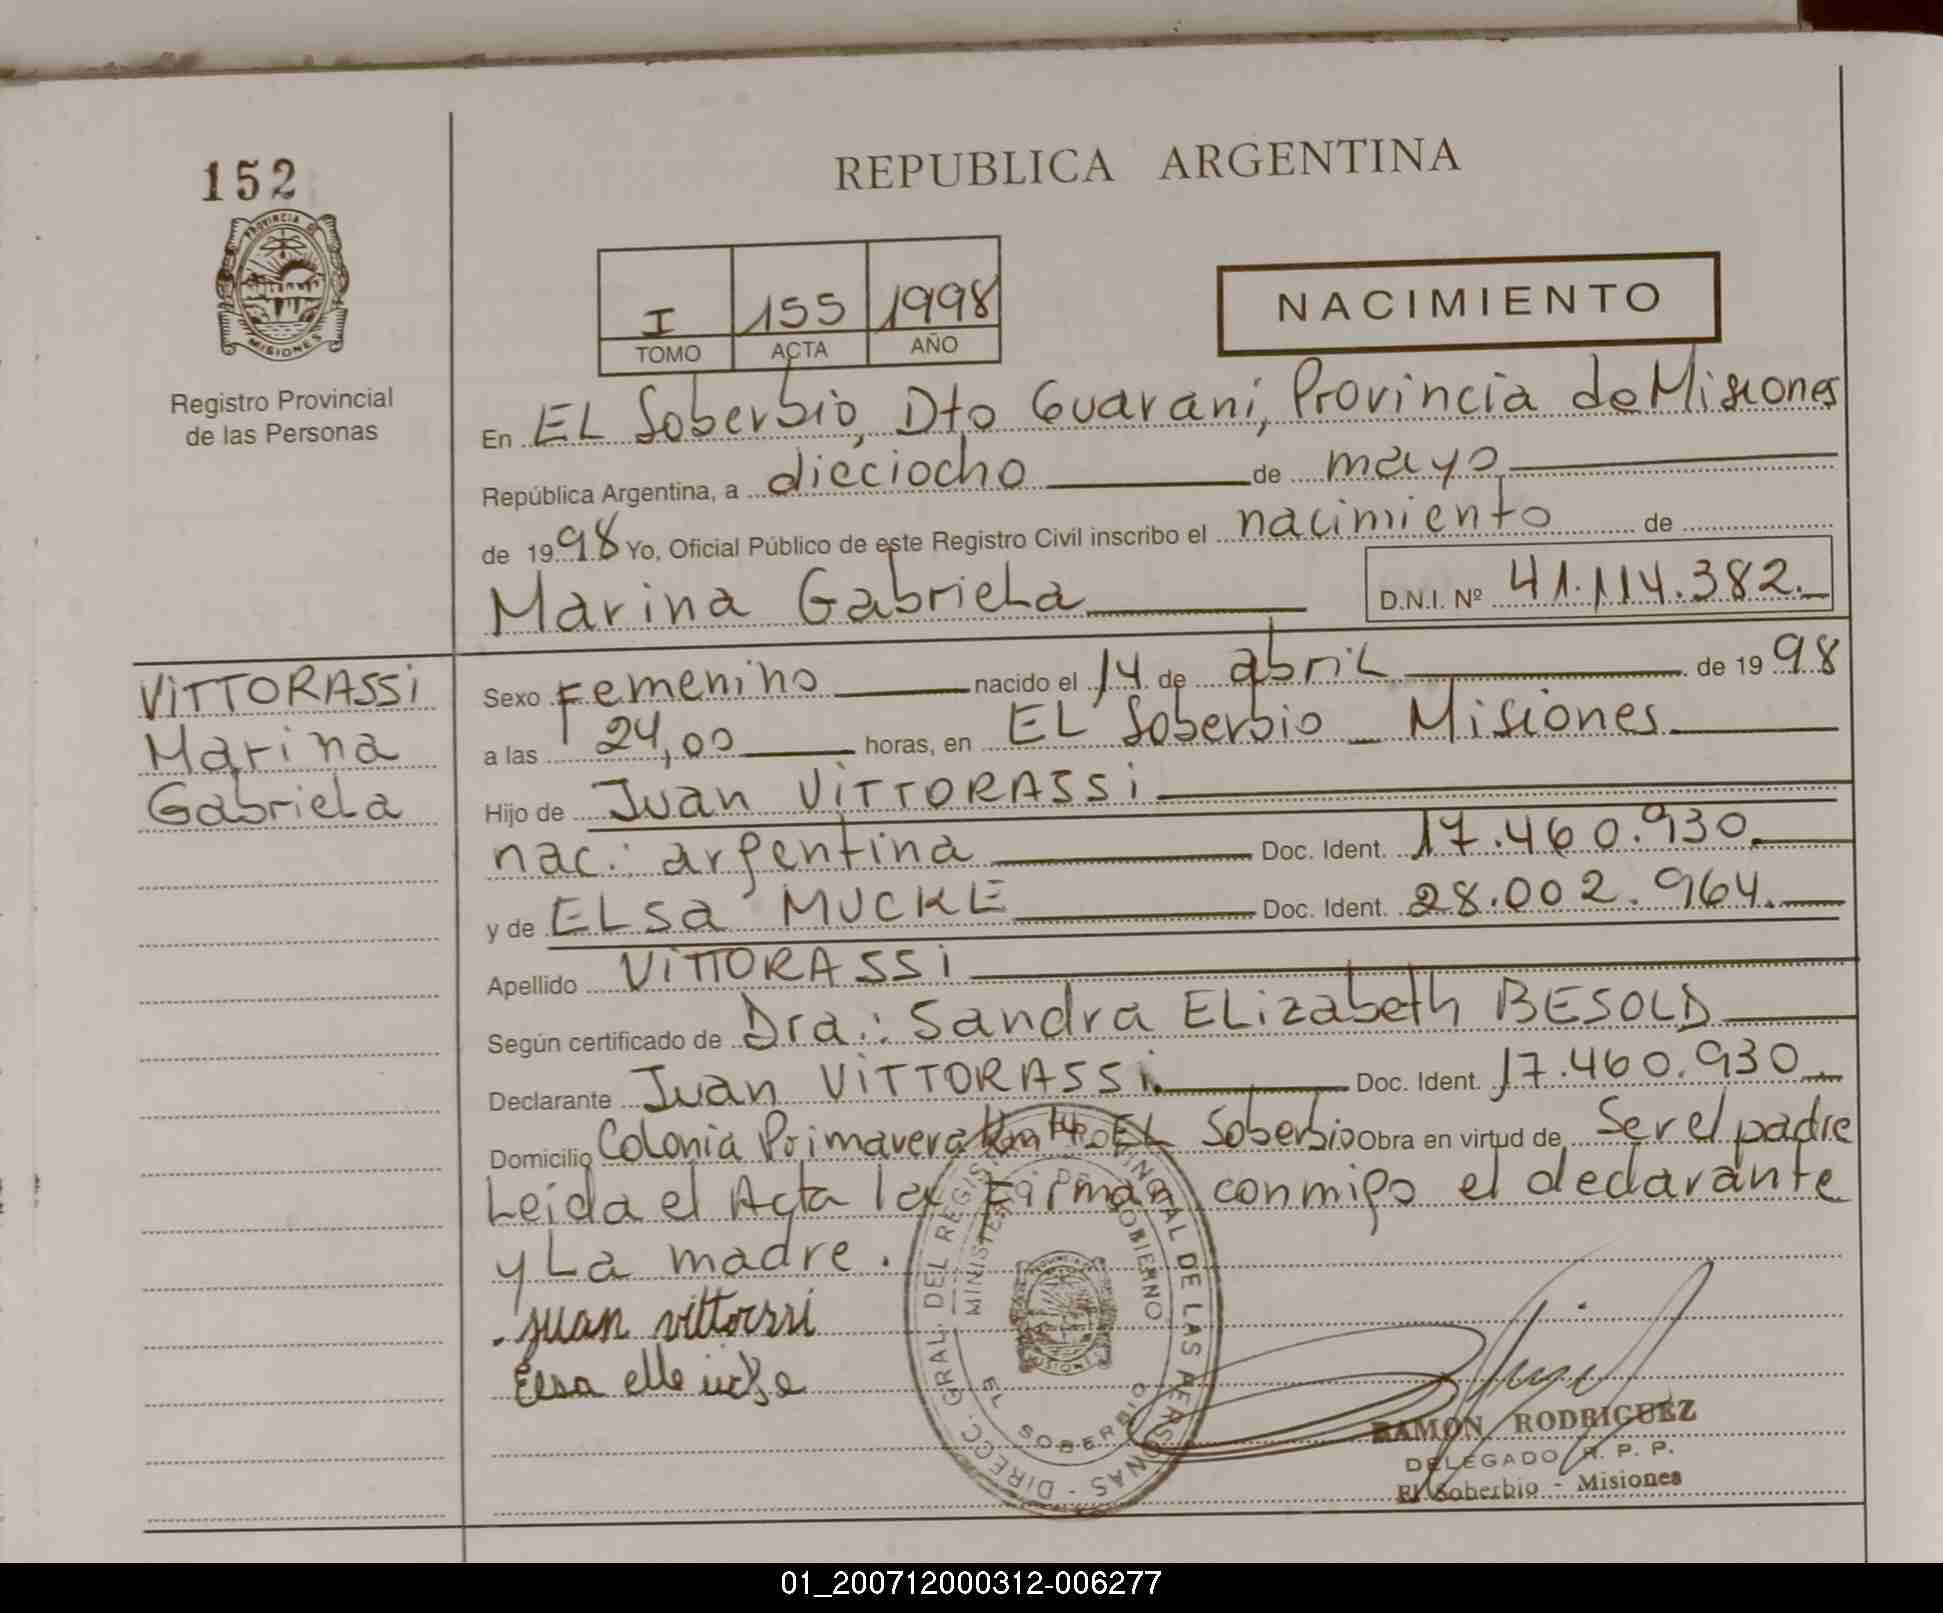 152
PROVINCIA DE
MISIONES
Registro Provincial
de las Personas
REPUBLICA ARGENTINA
I 155 1998
TOMO ACTA AÑO
NACIMIENTO
En EL Soberbio, Dto Guarani, Provincia de Misiones
República Argentina, a dieciocho de mayo
de 1998 Yo, Oficial Público de este Registro Civil inscribo el nacimiento de
Marina Gabriela D.N.I. Nº 41.114.382.
VITTORASSI
Marina
Gabriela
Sexo Femenino nacido el 14 de abril de 1998
a las 24,00 horas, en EL Soberbio - Misiones
Hijo de Juan VITTORASSI
nac.: argentina Doc. Ident. 17.460.930.
y de ELsa MUCKE Doc. Ident. 28.002.964.
Apellido VITTORASSI
Según certificado de Dra.: Sandra ELizabeth BESOLD
Declarante Juan VITTORASSI. Doc. Ident. 17.460.930
Domicilio Colonia Primavera EL Soberbio Obra en virtud de Ser el padre
Leida el Acta la Firman conmigo el declarante
y La madre.
juan
Elsa
DIRECC. GRAL. DEL REGISTRO PROVINCIAL DE LAS PERSONAS
MINISTERIO DE GOBIERNO
EL SOBERBIO
RAMON RODRIGUEZ
DELEGADO R. P. P.
El Soberbio - Misiones
01_200712000312-006277